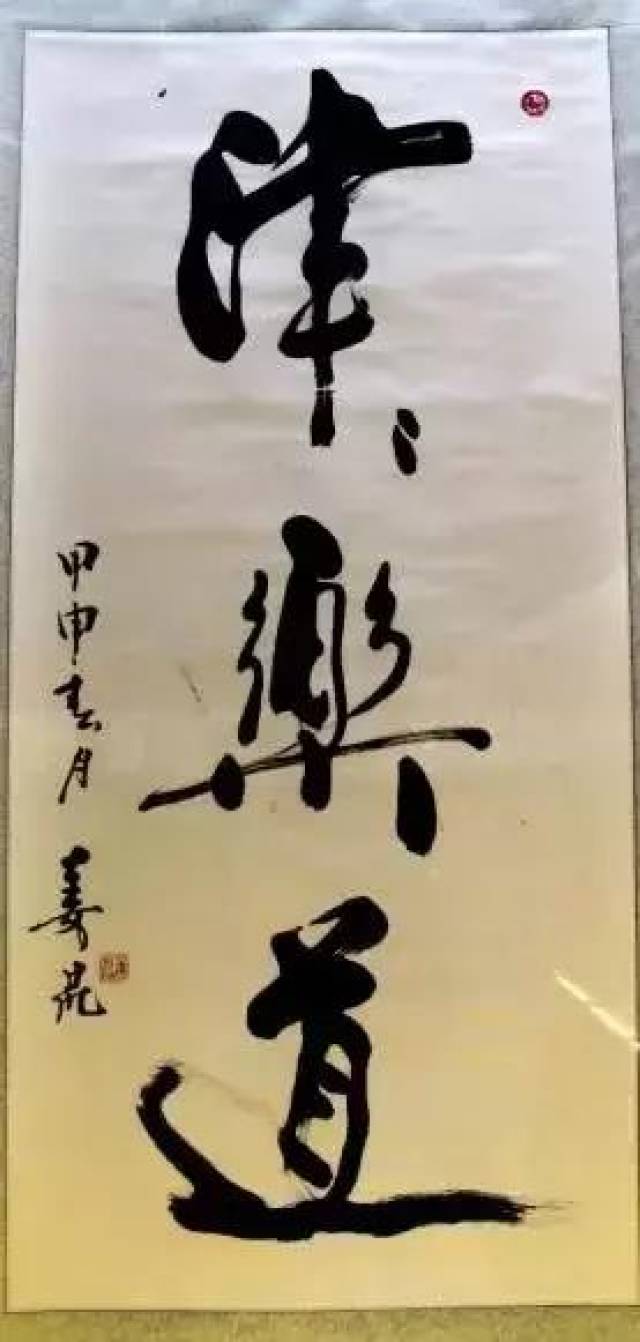 津、樂道
甲申春月 姜昆